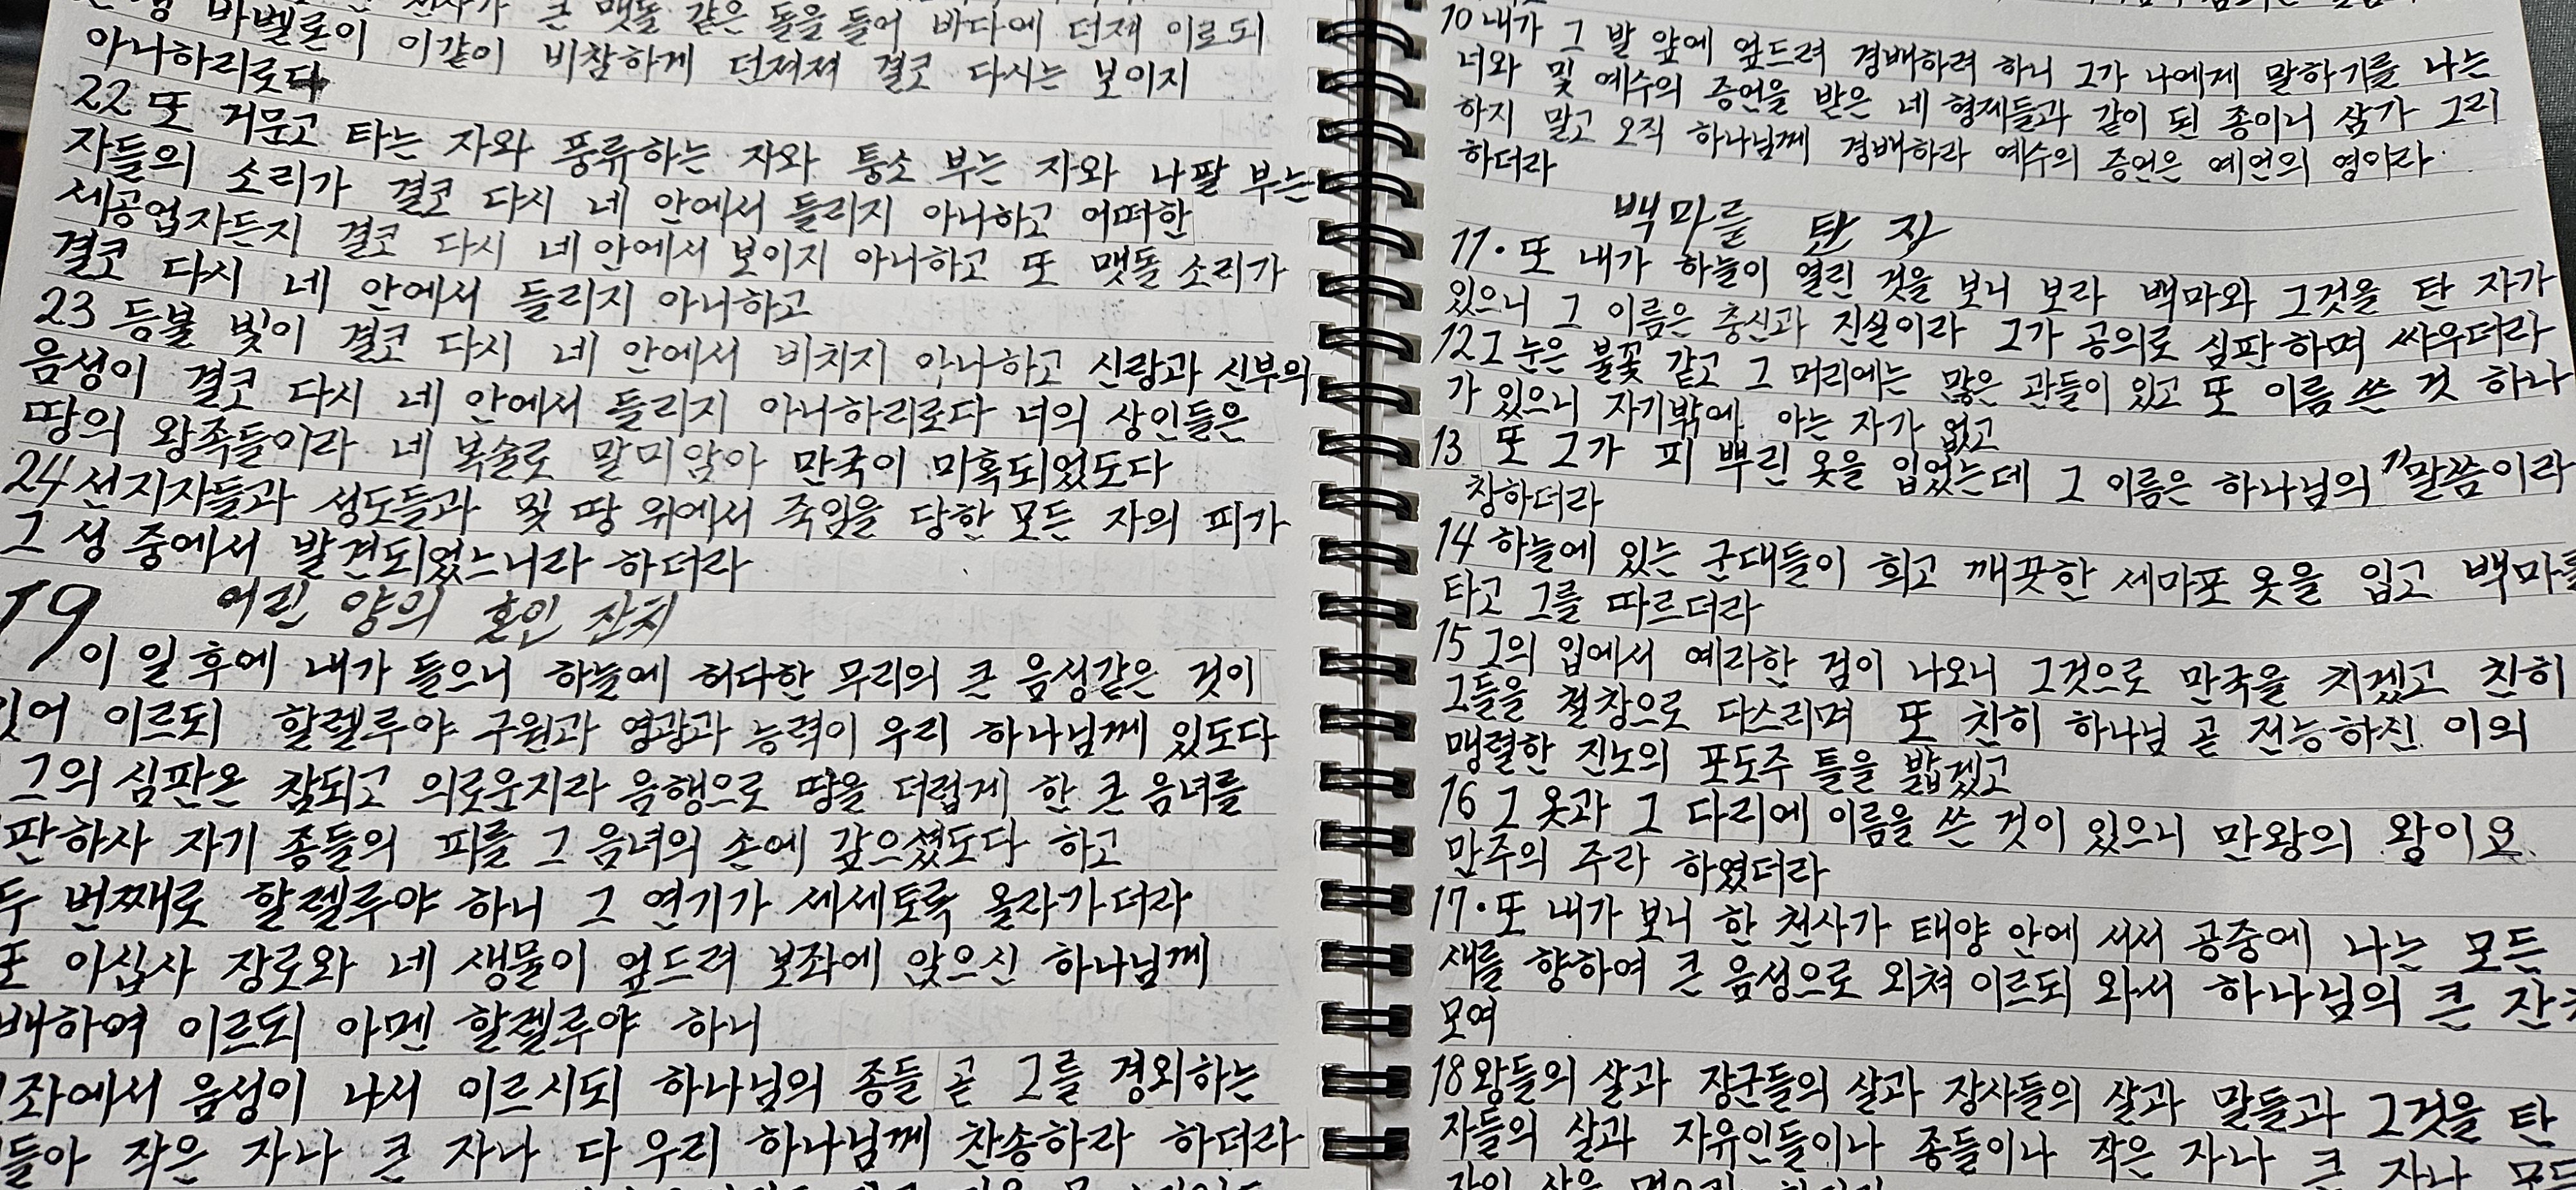 큰 맷돌 같은 돌을 들어 바다에 던져 이르되
바벨론이 이같이 비참하게 던져져 결코 다시는 보이지
아니하리로다
22 또 거문고 타는 자와 풍류하는 자와 퉁소 부는 자와 나팔 부는
자들의 소리가 결코 다시 네 안에서 들리지 아니하고 어떠한
세공업자든지 결코 다시 네 안에서 보이지 아니하고 또 맷돌 소리가
결코 다시 네 안에서 들리지 아니하고
23 등불 빛이 결코 다시 네 안에서 비치지 아니하고 신랑과 신부의
음성이 결코 다시 네 안에서 들리지 아니하리로다 너의 상인들은
땅의 왕족들이라 네 복술로 말미암아 만국이 미혹되었도다
24 선지자들과 성도들과 및 땅 위에서 죽임을 당한 모든 자의 피가
그 성 중에서 발견되었느니라 하더라
19 어린 양의 혼인 잔치
이 일 후에 내가 들으니 하늘에 허다한 무리의 큰 음성같은 것이
있어 이르되 할렐루야 구원과 영광과 능력이 우리 하나님께 있도다
그의 심판은 참되고 의로운지라 음행으로 땅을 더럽게 한 큰 음녀를
판하사 자기 종들의 피를 그 음녀의 손에 갚으셨도다 하고
두 번째로 할렐루야 하니 그 연기가 세세토록 올라가더라
또 이십사 장로와 네 생물이 엎드려 보좌에 앉으신 하나님께
배하여 이르되 아멘 할렐루야 하니
좌에서 음성이 나서 이르시되 하나님의 종들 곧 그를 경외하는
들아 작은 자나 큰 자나 다 우리 하나님께 찬송하라 하더라
10 내가 그 발 앞에 엎드려 경배하려 하니 그가 나에게 말하기를 나는
너와 및 예수의 증언을 받은 네 형제들과 같이 된 종이니 삼가 그리
하지 말고 오직 하나님께 경배하라 예수의 증언은 예언의 영이라
하더라
백마를 탄 자
11. 또 내가 하늘이 열린 것을 보니 보라 백마와 그것을 탄 자가
있으니 그 이름은 충신과 진실이라 그가 공의로 심판하며 싸우더라
12 그 눈은 불꽃 같고 그 머리에는 많은 관들이 있고 또 이름 쓴 것 하나
가 있으니 자기밖에 아는 자가 없고
13 또 그가 피 뿌린 옷을 입었는데 그 이름은 하나님의 말씀이라
칭하더라
14 하늘에 있는 군대들이 희고 깨끗한 세마포 옷을 입고 백마를
타고 그를 따르더라
15 그의 입에서 예리한 검이 나오니 그것으로 만국을 치겠고 친히
그들을 철장으로 다스리며 또 친히 하나님 곧 전능하신 이의
맹렬한 진노의 포도주 틀을 밟겠고
16 그 옷과 그 다리에 이름을 쓴 것이 있으니 만왕의 왕이요
만주의 주라 하였더라
17. 또 내가 보니 한 천사가 태양 안에 서서 공중에 나는 모든
새를 향하여 큰 음성으로 외쳐 이르되 와서 하나님의 큰
모여
18 왕들의 살과 장군들의 살과 장사들의 살과 말들과 그것을 탄
자들의 살과 자유인들이나 종들이나 작은 자나 큰 자나 모든